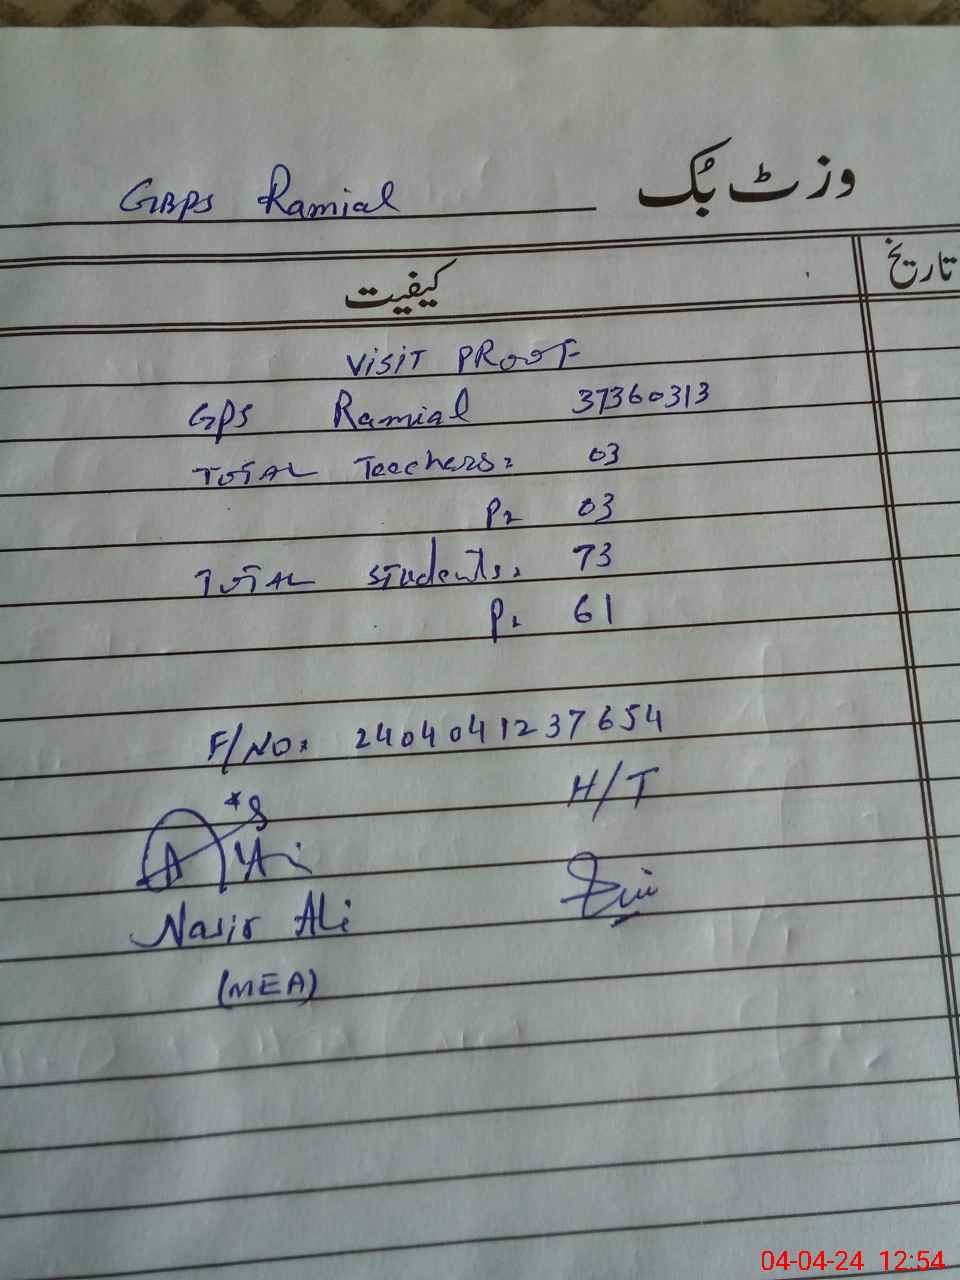 وزٹ بُک
GBPS Ramial
تاریخ
کیفیت
VISIT PROOF
GPS Ramial 37360313
TOTAL Teachers: 03
P: 03
TOTAL students: 73
P: 61
F/NO: 2404041237654
H/T
Nasir Ali
(MEA)
04-04-24 12:54